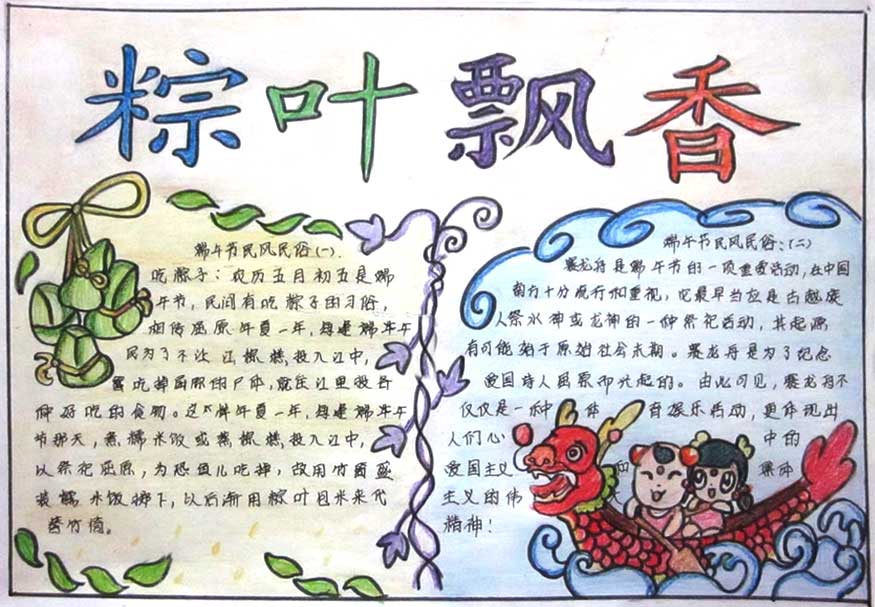 粽叶飘香
端午节民风民俗(一).
吃粽子：农历五月初五是端
午节，民间有吃粽子的习俗，
相传屈原
民为了不让江
吃掉屈原的尸体，就往江里投各
种好吃的食物。这
节那天，煮糯米饭或蒸
投入江中，
以祭祀屈原，为恐鱼儿吃掉，故用竹筒盛
装糯米饭掷下，以后渐用粽叶包米来代
替竹筒。
端午节民风民俗：(二)
赛龙舟是端午节的一项重要活动，在中国
南方十分流行和重视，它最早当应是古越族
人祭水神或龙神的一种祭祀活动，其起源
有可能始于原始社会末期。赛龙舟是为了纪念
爱国诗人屈原而兴起的。由此可见，赛龙舟不
仅仅是一种 体 育娱乐活动，更体现出
人们心 中的
爱国主义 和 集体
主义的伟 大
精神！